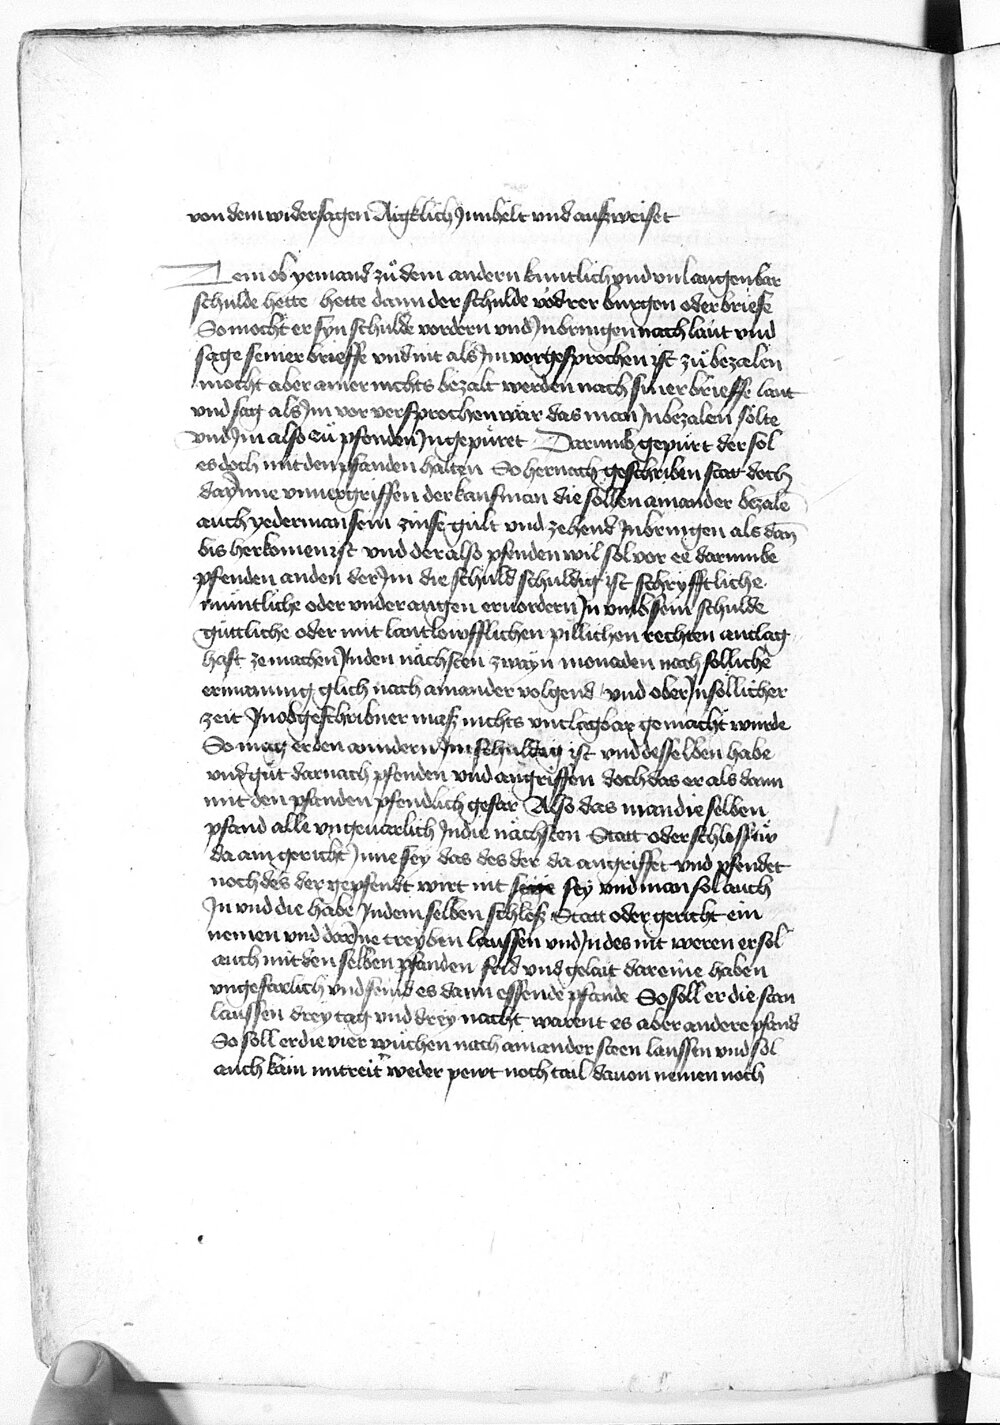 von dem widersagen Aigklich Jnnhelt und außweiset
Item ob yemand zů dem andern kuntlich vnd vnlaugenbar
schulde hette hette dann der schulde vordrer burgen oder briefe
So mocht er syn schulde vordern und Jnbringen nach laut und
sage seiner brieffe vnd nit als Jm vorgesprochen ist zů bezalen
mocht aber aimer nichts bezalt werden nach siner brieffe laut
vnd sag als Jm vor versprochen wär das man Jn bezalen sölte
vnd Jm also zů pfenden Jn gepüret Darumb gepürt der sol
es doch mit den pfanden halten So hernach geschriben stat doch
darJnne vnuergriffen der kaufman die söllen ainander bezalē
auch yederman sein zinse gült vnd zehend Jnbringen als dañ
bis herkomen ist vnd der also pfenden wil sol vor ee darumbe
pfenden an den der Jm die schuld schuldig ist schryfftliche
muntliche oder vnder augen eruordern Jn vmb sein schulde
güttliche oder mit lantlowfflichen pillichen rechten anclag
haft ze machen Jn den nächsten zwayn monaden nach sölliche
ermanung glich nach ainander volgend vnd ob er Jn söllicher
zeit Jn obgeschribner maß nichts vnclagbar gemacht wurde
So mag er den anndern Jm schuldig ist vnd desselben habe
vnd gůt darnach pfenden vnd angriffen doch das er als dann
mit den pfanden pfendlich gefar Also das man die selben
pfand alle vngeuarlich Jn die nächsten Statt oder schlosser
da ain gericht Jnne sey das des der da angriffet vnd pfendet
noch des der gepfendt wirt nit sey vnd man sol auch
Jn vnd die habe Jn dem selben schloß Statt oder gericht ein
nemen vnd darJne treyben laussen vnd Jn des nit weren er sol
auch mit den selben pfanden frid vnd gelait dareine haben
vngefarlich vnd seind es dann essende pfande So soll er die stan
laussen drey tag vnd drey nacht warent es aber andere pfand
So soll er die vier wůchen nach ainander steen laussen vnd sol
auch kain weder pewt noch tail dauon nemen noch